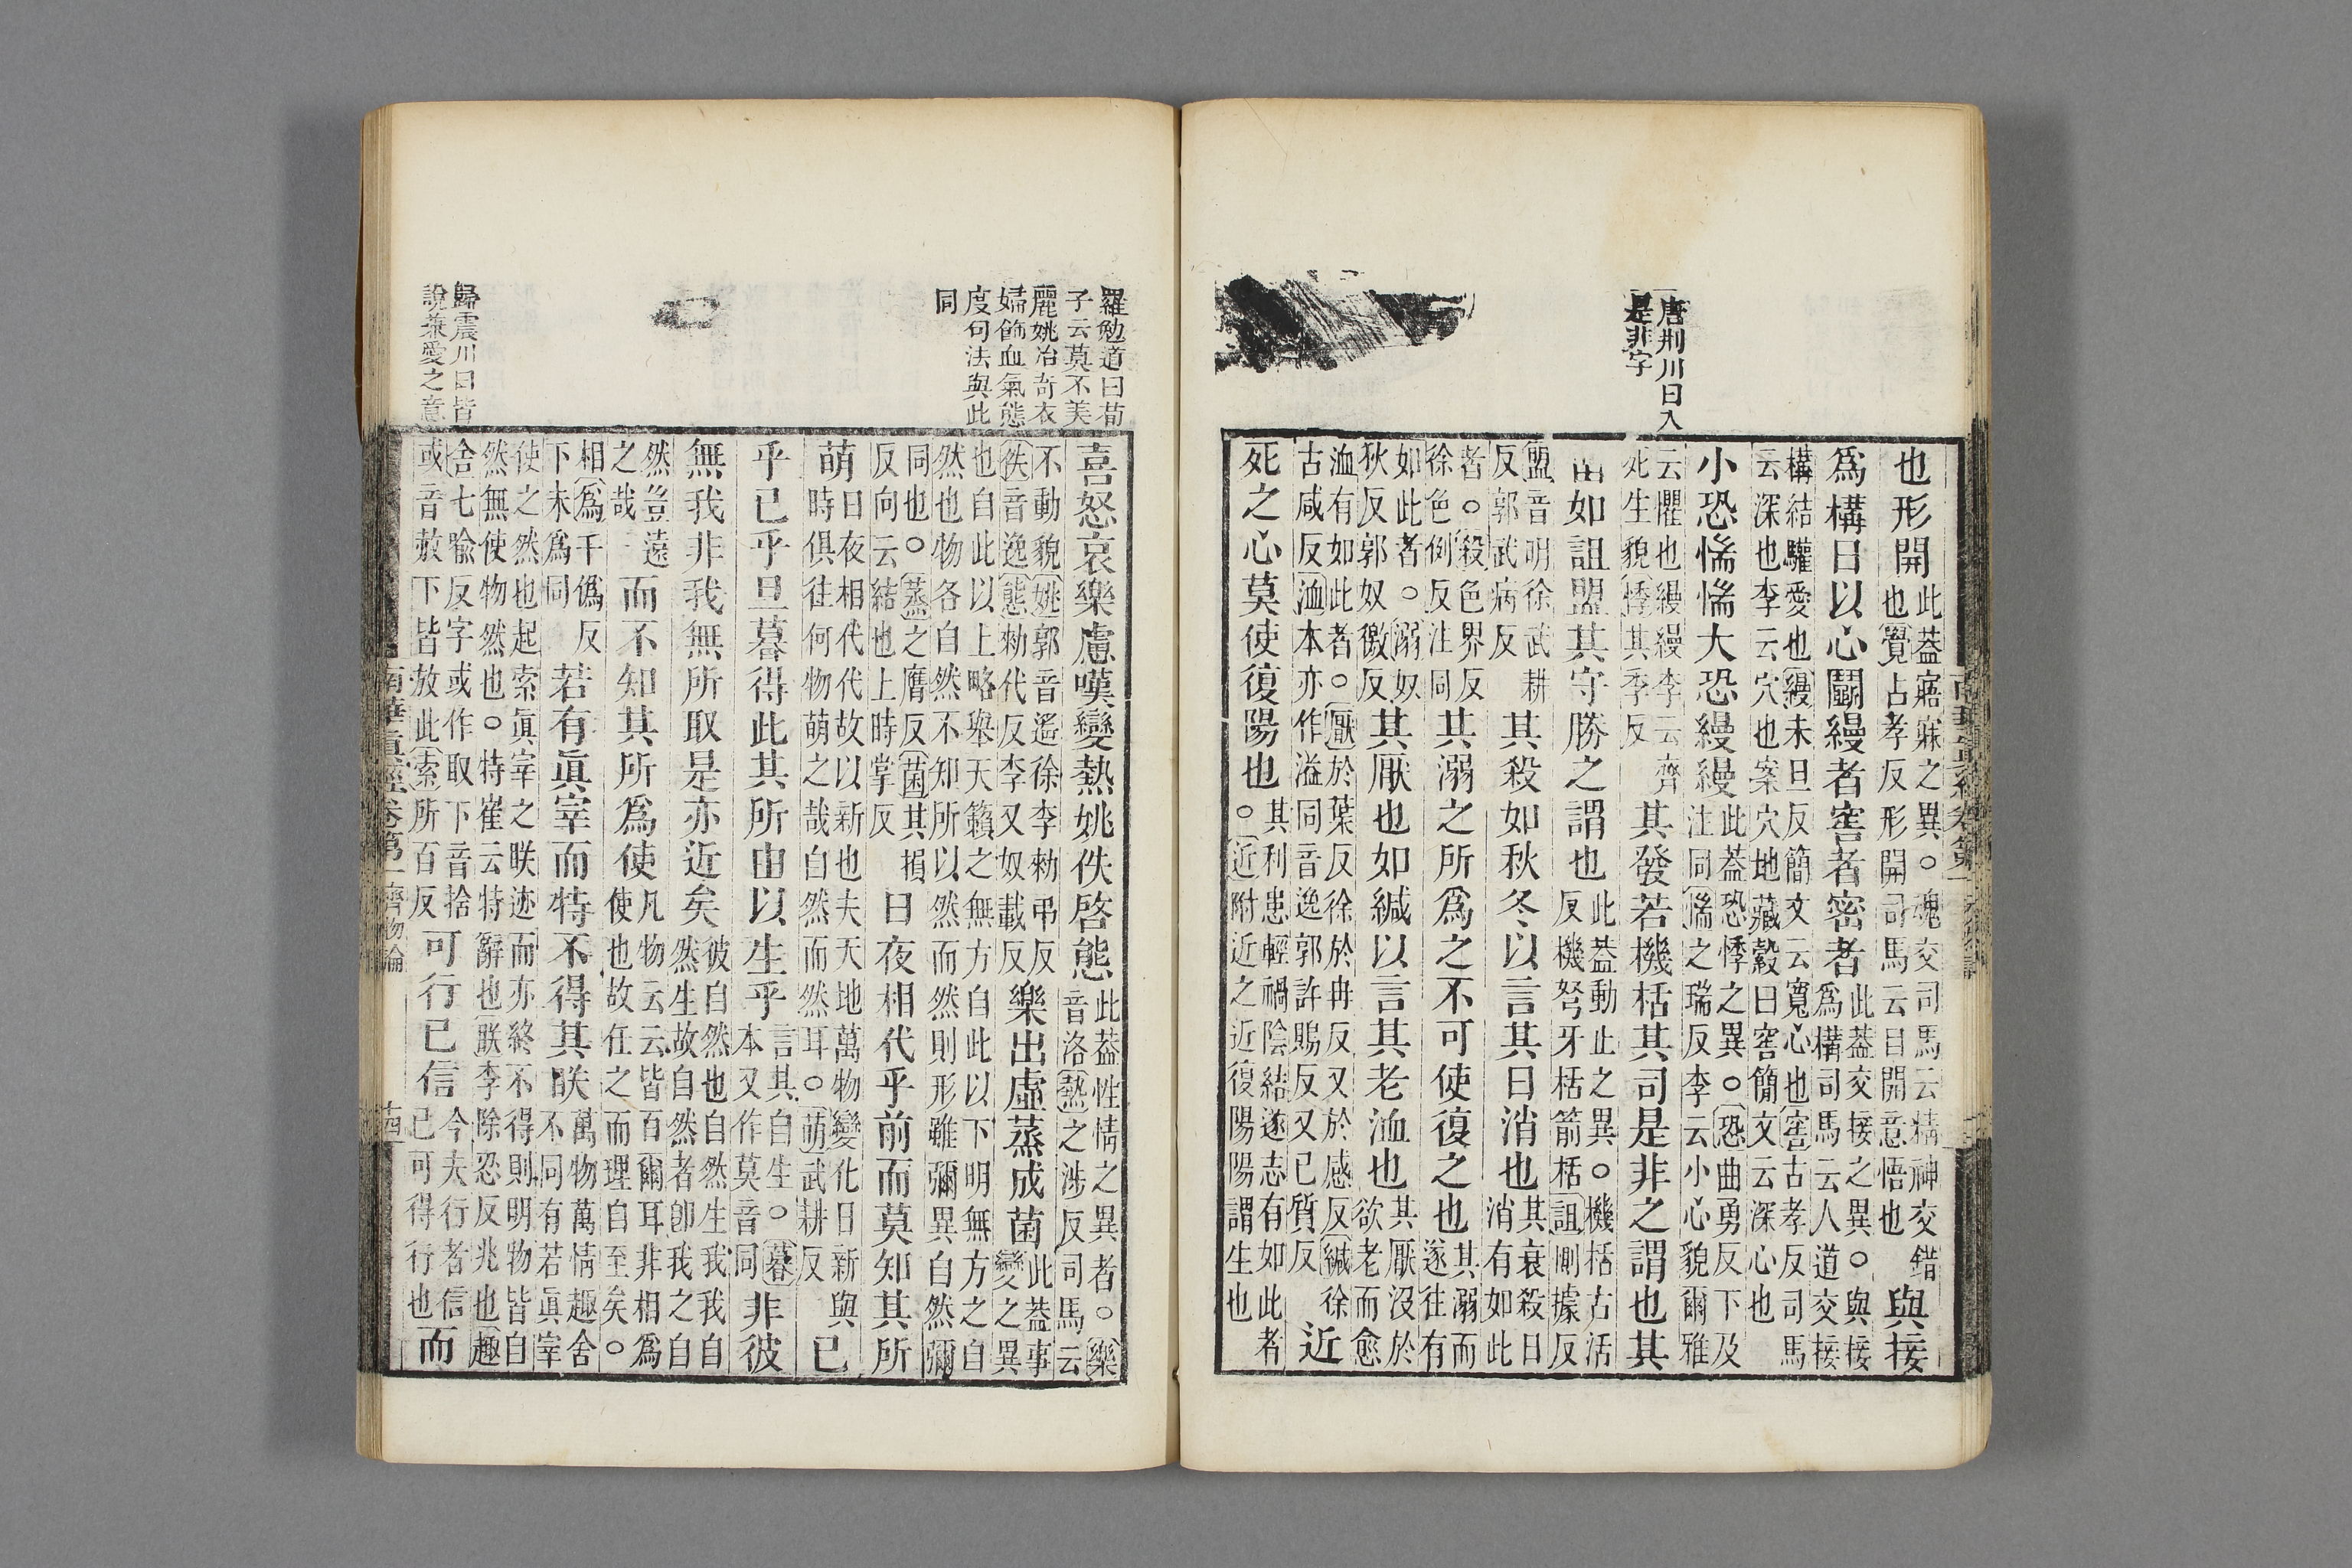 唐荆川曰入
是非字
也形開此葢寤寐之異○魂交司馬云精神交錯也覺占孝反形開司馬云目開意悟也與接
爲構日以心鬭縵者窖者密者此葢交接之異○與接爲構司馬云人道交接
構結驩愛也縵未旦反簡文云寬心也窖古孝反司馬云深也李云穴也案穴地藏穀曰窖簡文云深心也
小恐惴惴大恐縵縵此葢恐悸之異○恐曲勇反下及注同惴之瑞反李云小心貌爾雅
云懼也縵縵李云齊死生貌悸其季反其發若機栝其司是非之謂也其
留如詛盟其守勝之謂也此葢動止之異○機栝古活反機弩牙栝箭栝詛側據反
盟音明徐武耕反郭武病反其殺如秋冬以言其日消也其衰殺日消有如此
者○殺色界反徐色例反注同其溺之所爲之不可使復之也其溺而遂往有
如此者○溺奴狄反郭奴徼反其厭也如緘以言其老洫也其厭沒於欲老而愈
洫有如此者○厭於葉反徐於冉反又於感反緘徐古咸反洫本亦作溢同音逸郭許鵙反又已質反近
死之心莫使復陽也其利患輕禍陰結遂志有如此者○近附近之近復陽陽謂生也
羅勉道曰荀
子云莫不美
麗姚冶奇衣
婦飾血氣態
度句法與此
同
歸震川曰皆
說兼愛之意
喜怒哀樂慮嘆變熱姚佚啓態此葢性情之異者○樂音洛熱之涉反司馬云
不動貌姚郭音遙徐李勑弔反佚音逸態勑代反李又奴載反樂出虛蒸成菌此葢事變之異
也自此以上略舉天籟之無方自此以下明無方之自然也物各自然不知所以然而然則形雖彌異自然彌
同也○蒸之膺反菌其損反向云結也上時掌反日夜相代乎前而莫知其所
萌日夜相代代故以新也夫天地萬物變化日新與時俱往何物萌之哉自然而然耳○萌武耕反已
乎已乎旦暮得此其所由以生乎言其自生○暮本又作莫音同非彼
無我非我無所取是亦近矣彼自然也自然生我我自然生故自然者卽我之自
然豈遠之哉而不知其所爲使凡物云云皆百爾耳非相爲使也故任之而理自至矣○
相爲千僞反下未爲同若有眞宰而特不得其眹萬物萬情趣舍不同有若眞宰
使之然也起索眞宰之眹迹而亦終不得則明物皆自然無使物然也○特崔云特辭也眹李除忍反兆也趣
舍七喻反字或作取下音捨或音赦下皆放此索所百反可行已信今夫行者信已可得行也而
南華眞經卷第一 齊物論